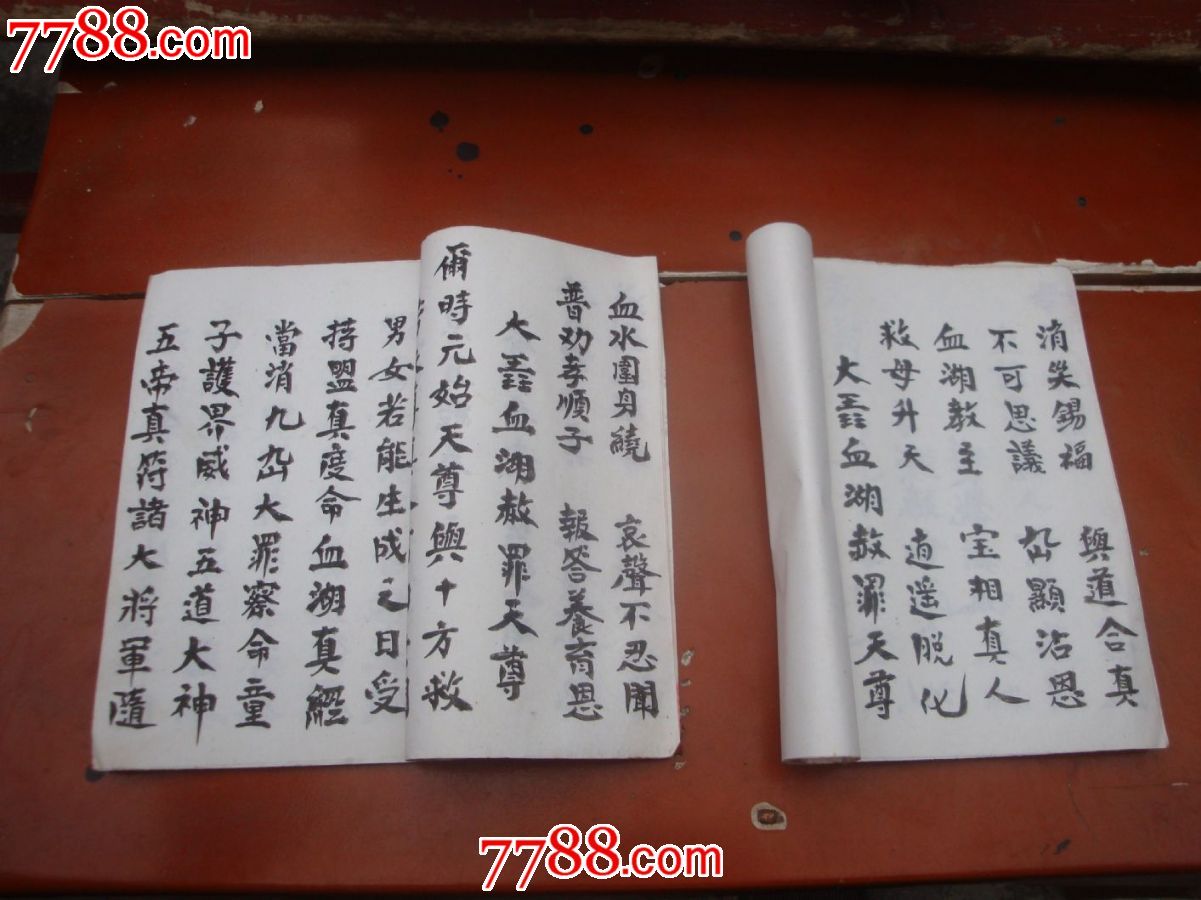 7788.com
消灾錫福 與道合真
不可思議 幽顯沾恩
血湖教主 宝相真人
救母升天 逍遥脱化
大血湖赦罪天尊
血水圍身繞 哀聲不忍聞
普劝孝順子 報答養育恩
大血湖赦罪天尊
爾時元始天尊與十方救
男女若能生成之日受
持盟真度命血湖真經
當消九幽大罪察命童
子護界威神五道大神
五帝真符諸大將軍隨
7788.com